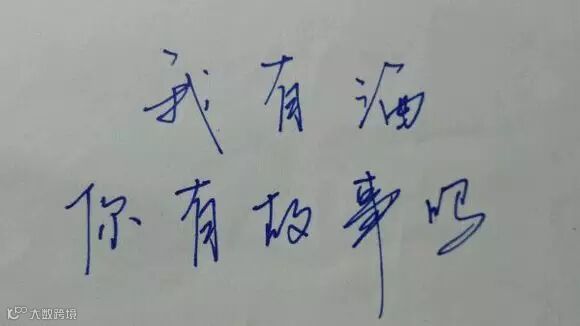 我有酒
你有故事吗
大数跨境